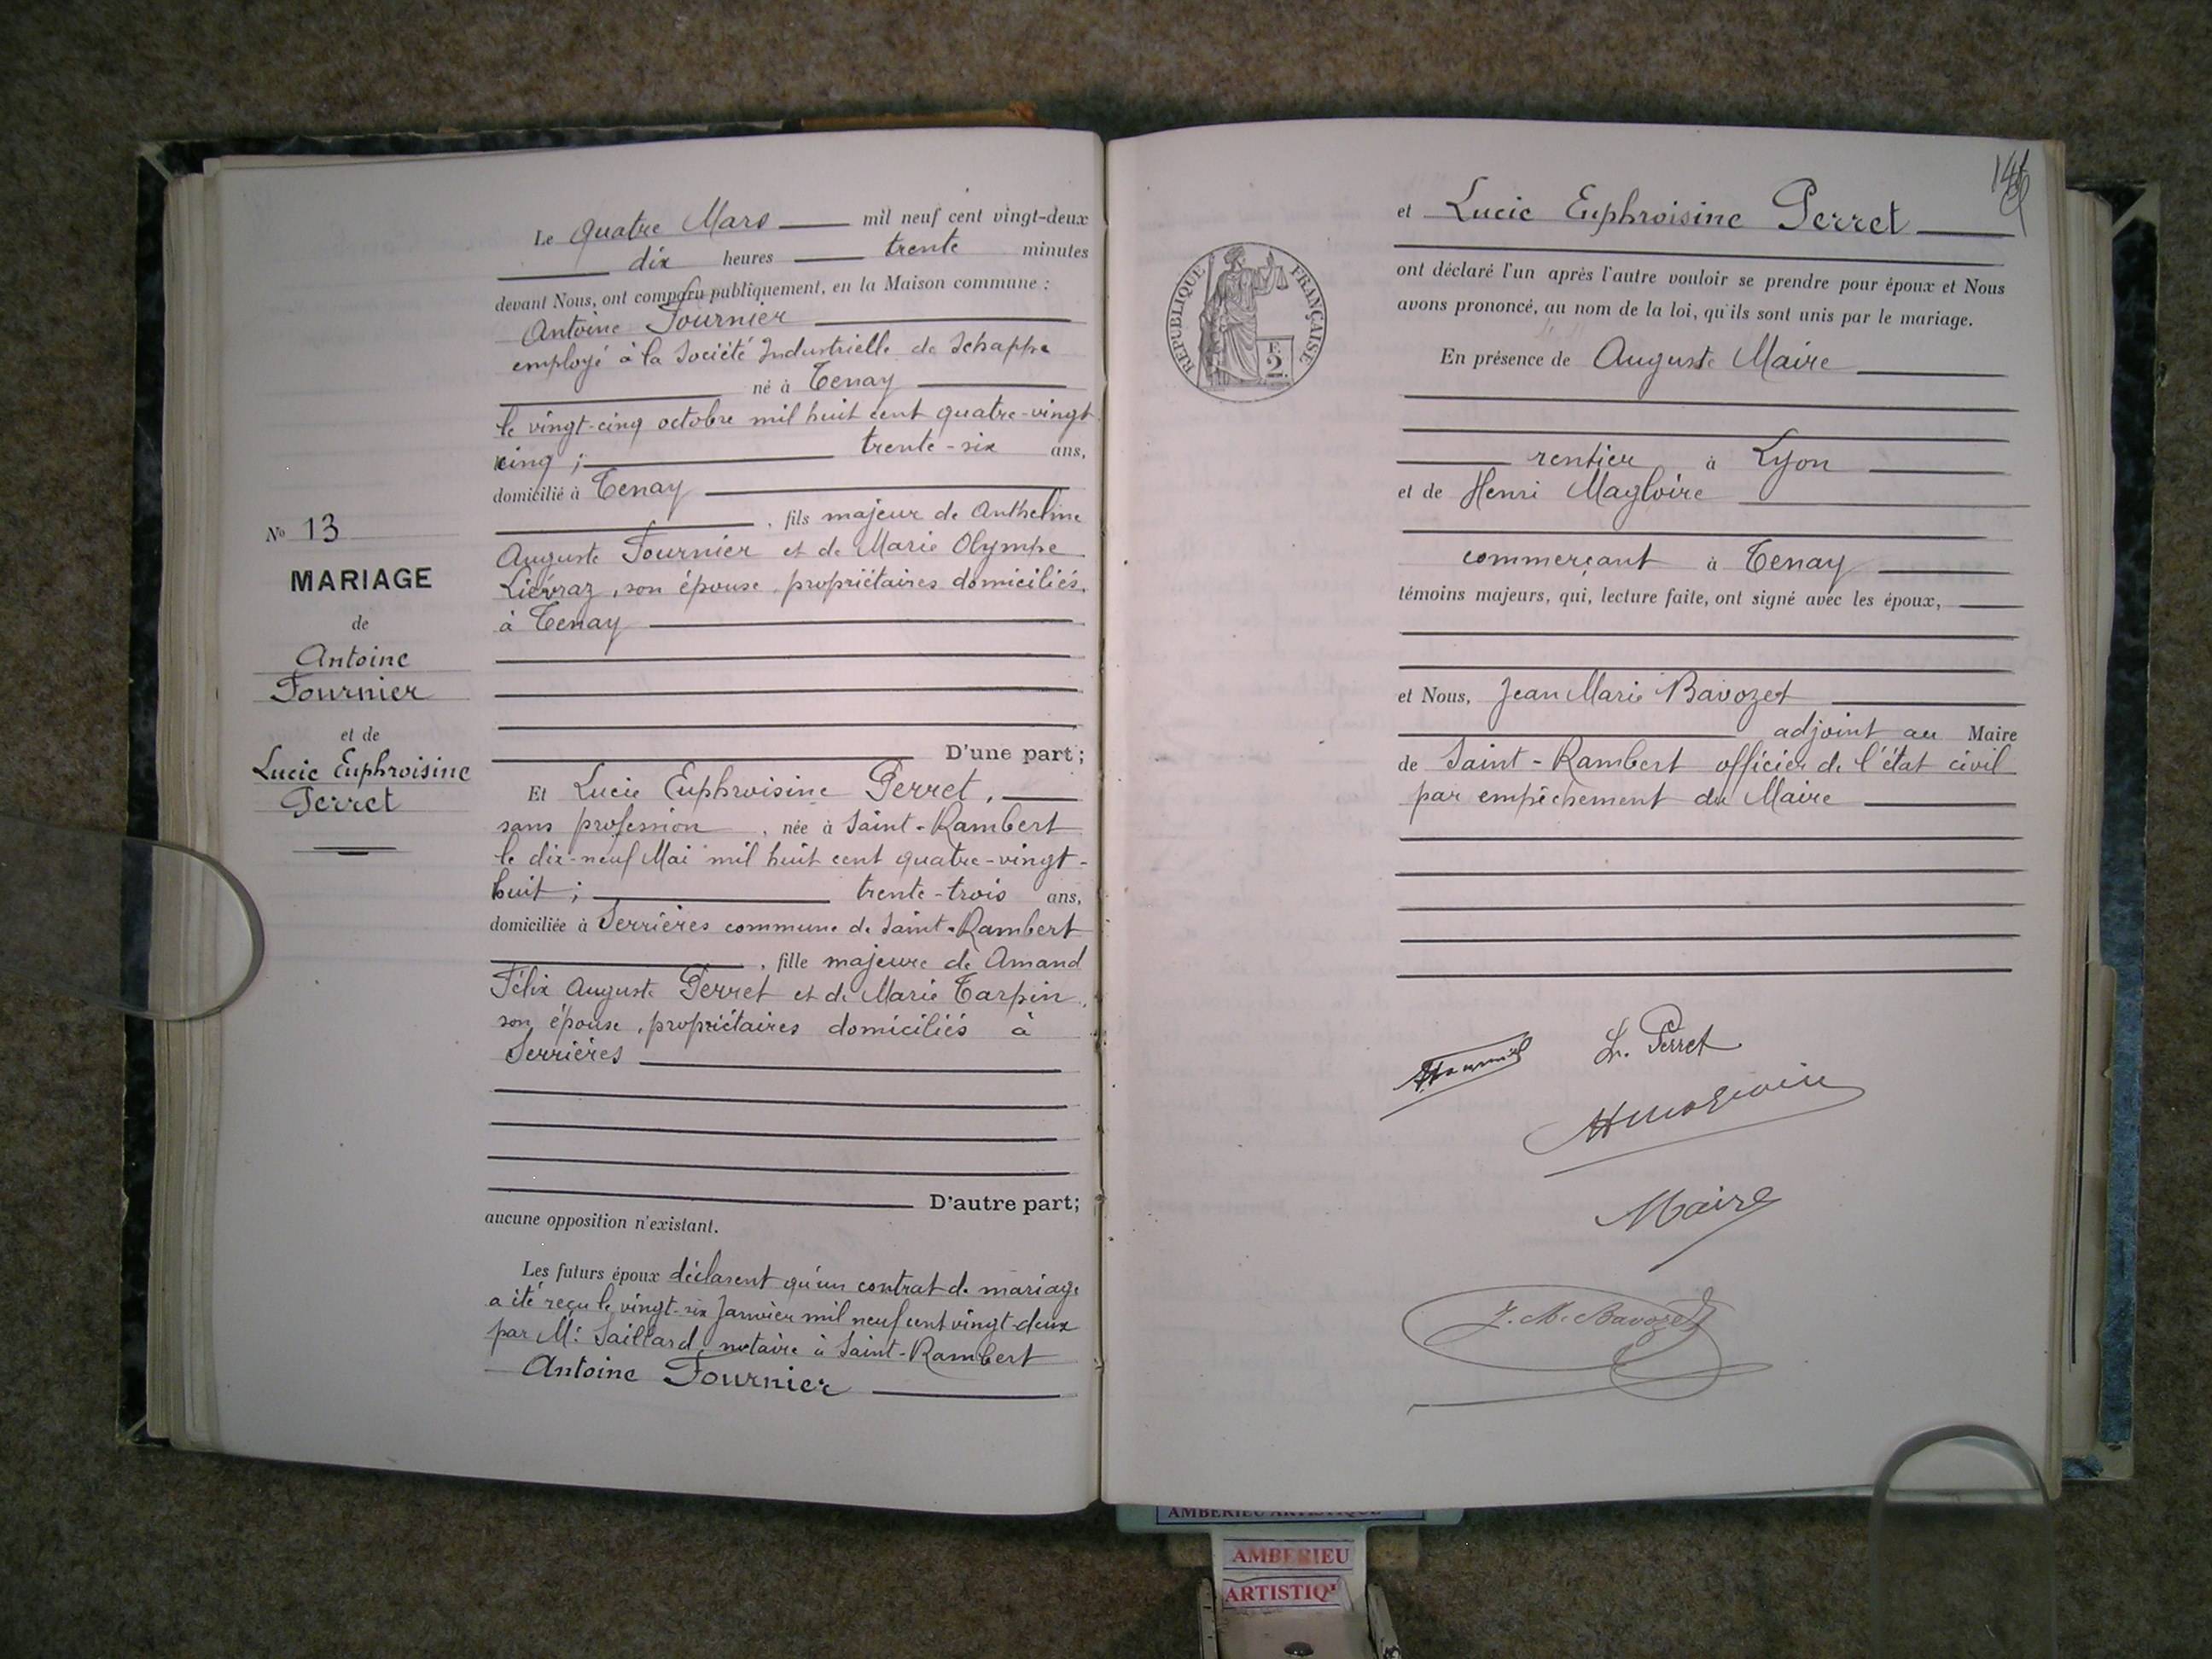 Le quatre Mars mil neuf cent vingt-deux
dix heures trente minutes
devant Nous, ont comparu publiquement, en la Maison commune :
Antoine Fournier
employé à la Société Industrielle de Schappe
né à Tenay
le vingt-cinq octobre mil huit cent quatre-vingt
cinq ; trente-six ans,
domicilié à Tenay
, fils majeur de Anthelme
Auguste Fournier et de Marie Olympe
Liévraz, son épouse, propriétaires domiciliés,
à Tenay
D'une part ;
Et Lucie Euphroisine Perret,
sans profession, née à Saint-Rambert
le dix-neuf Mai mil huit cent quatre-vingt-
huit ; trente-trois ans,
domiciliée à Serrières commune de Saint-Rambert
, fille majeure de Amand
Félix Auguste Perret et de Marie Tarpin,
son épouse, propriétaires domiciliés à
Serrières
D'autre part ;
aucune opposition n'existant.
Les futurs époux déclarent qu'un contrat de mariage
a été reçu le vingt-six Janvier mil neuf cent vingt-deux
par Me Saillard, notaire à Saint-Rambert
Antoine Fournier
No 13
MARIAGE
de
Antoine
Fournier
et de
Lucie Euphroisine
Perret
et Lucie Euphroisine Perret
ont déclaré l'un après l'autre vouloir se prendre pour époux et Nous
avons prononcé, au nom de la loi, qu'ils sont unis par le mariage.
En présence de Auguste Maire
rentier à Lyon
et de Henri Magloire
commerçant à Tenay
témoins majeurs, qui, lecture faite, ont signé avec les époux,
et Nous, Jean Marie Bavozet
adjoint au Maire
de Saint-Rambert officier de l'état civil
par empêchement du Maire
RÉPUBLIQUE FRANÇAISE
F.
2.
L. Perret
Maire
J. M. Bavozet
AMBERIEU ARTISTIQUE
AMBERIEU
ARTISTIQ